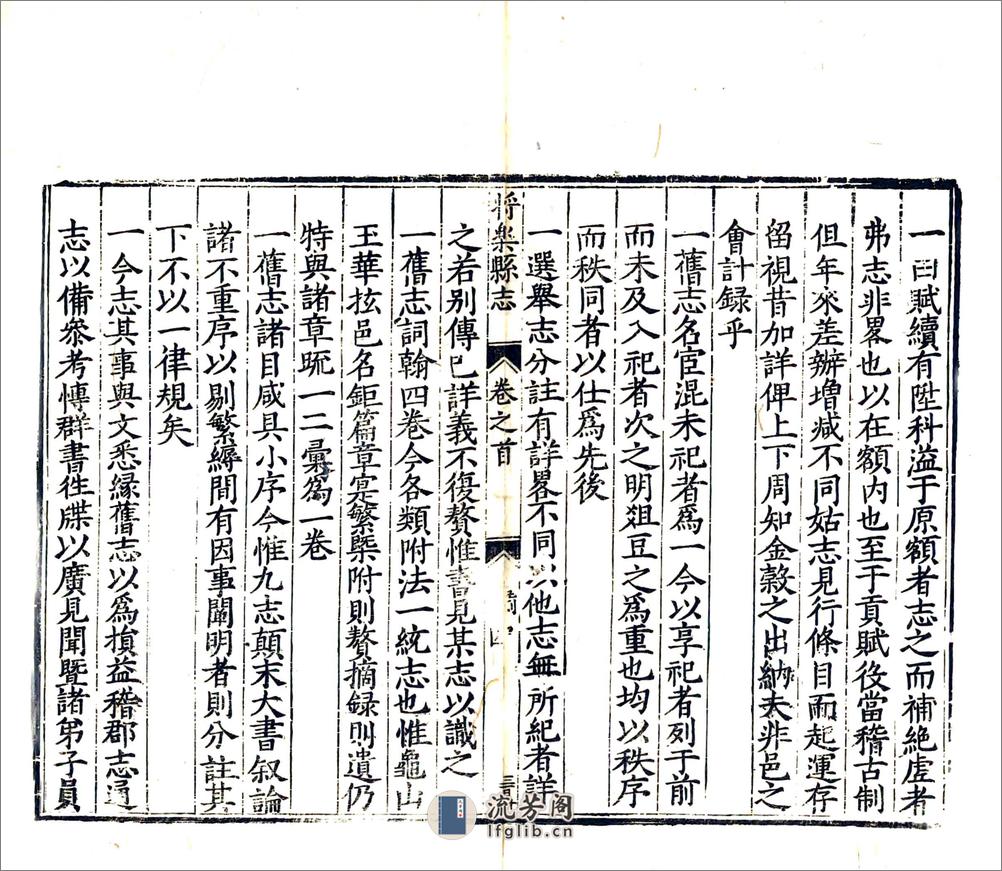 一田賦續有陞科溢于原額者志之而補絶虛者
弗志非畧也以在額內也至于貢賦役當稽古制
但年來差辦增減不同姑志見行條目而起運存
留視昔加詳俾上下周知金穀之出納夫非邑之
會計録乎
一舊志名宦混未祀者爲一今以享祀者列于前
而未及入祀者次之明爼豆之爲重也均以秩序
而秩同者以仕爲先後
一選舉志分註有詳畧不同以他志無所紀者詳
將樂縣志
卷之首
四
之若别傳已詳義不復贅惟書見某志以識之
一舊志詞翰四卷今各類附法一統志也惟龜山
玉華挍邑名鉅篇章寔繁槩附則贅摘録則遺仍
特與諸章䟽一二彙爲一卷
一舊志諸目咸具小序今惟九志顛末大書叙論
諸不重序以剔繁縟間有因事闡明者則分註其
下不以一律規矣
一今志其事與文悉緣舊志以爲損益稽郡志通
志以備叅考慱群書徃牒以廣見聞暨諸弟子員
流芳阁
lfglib.cn